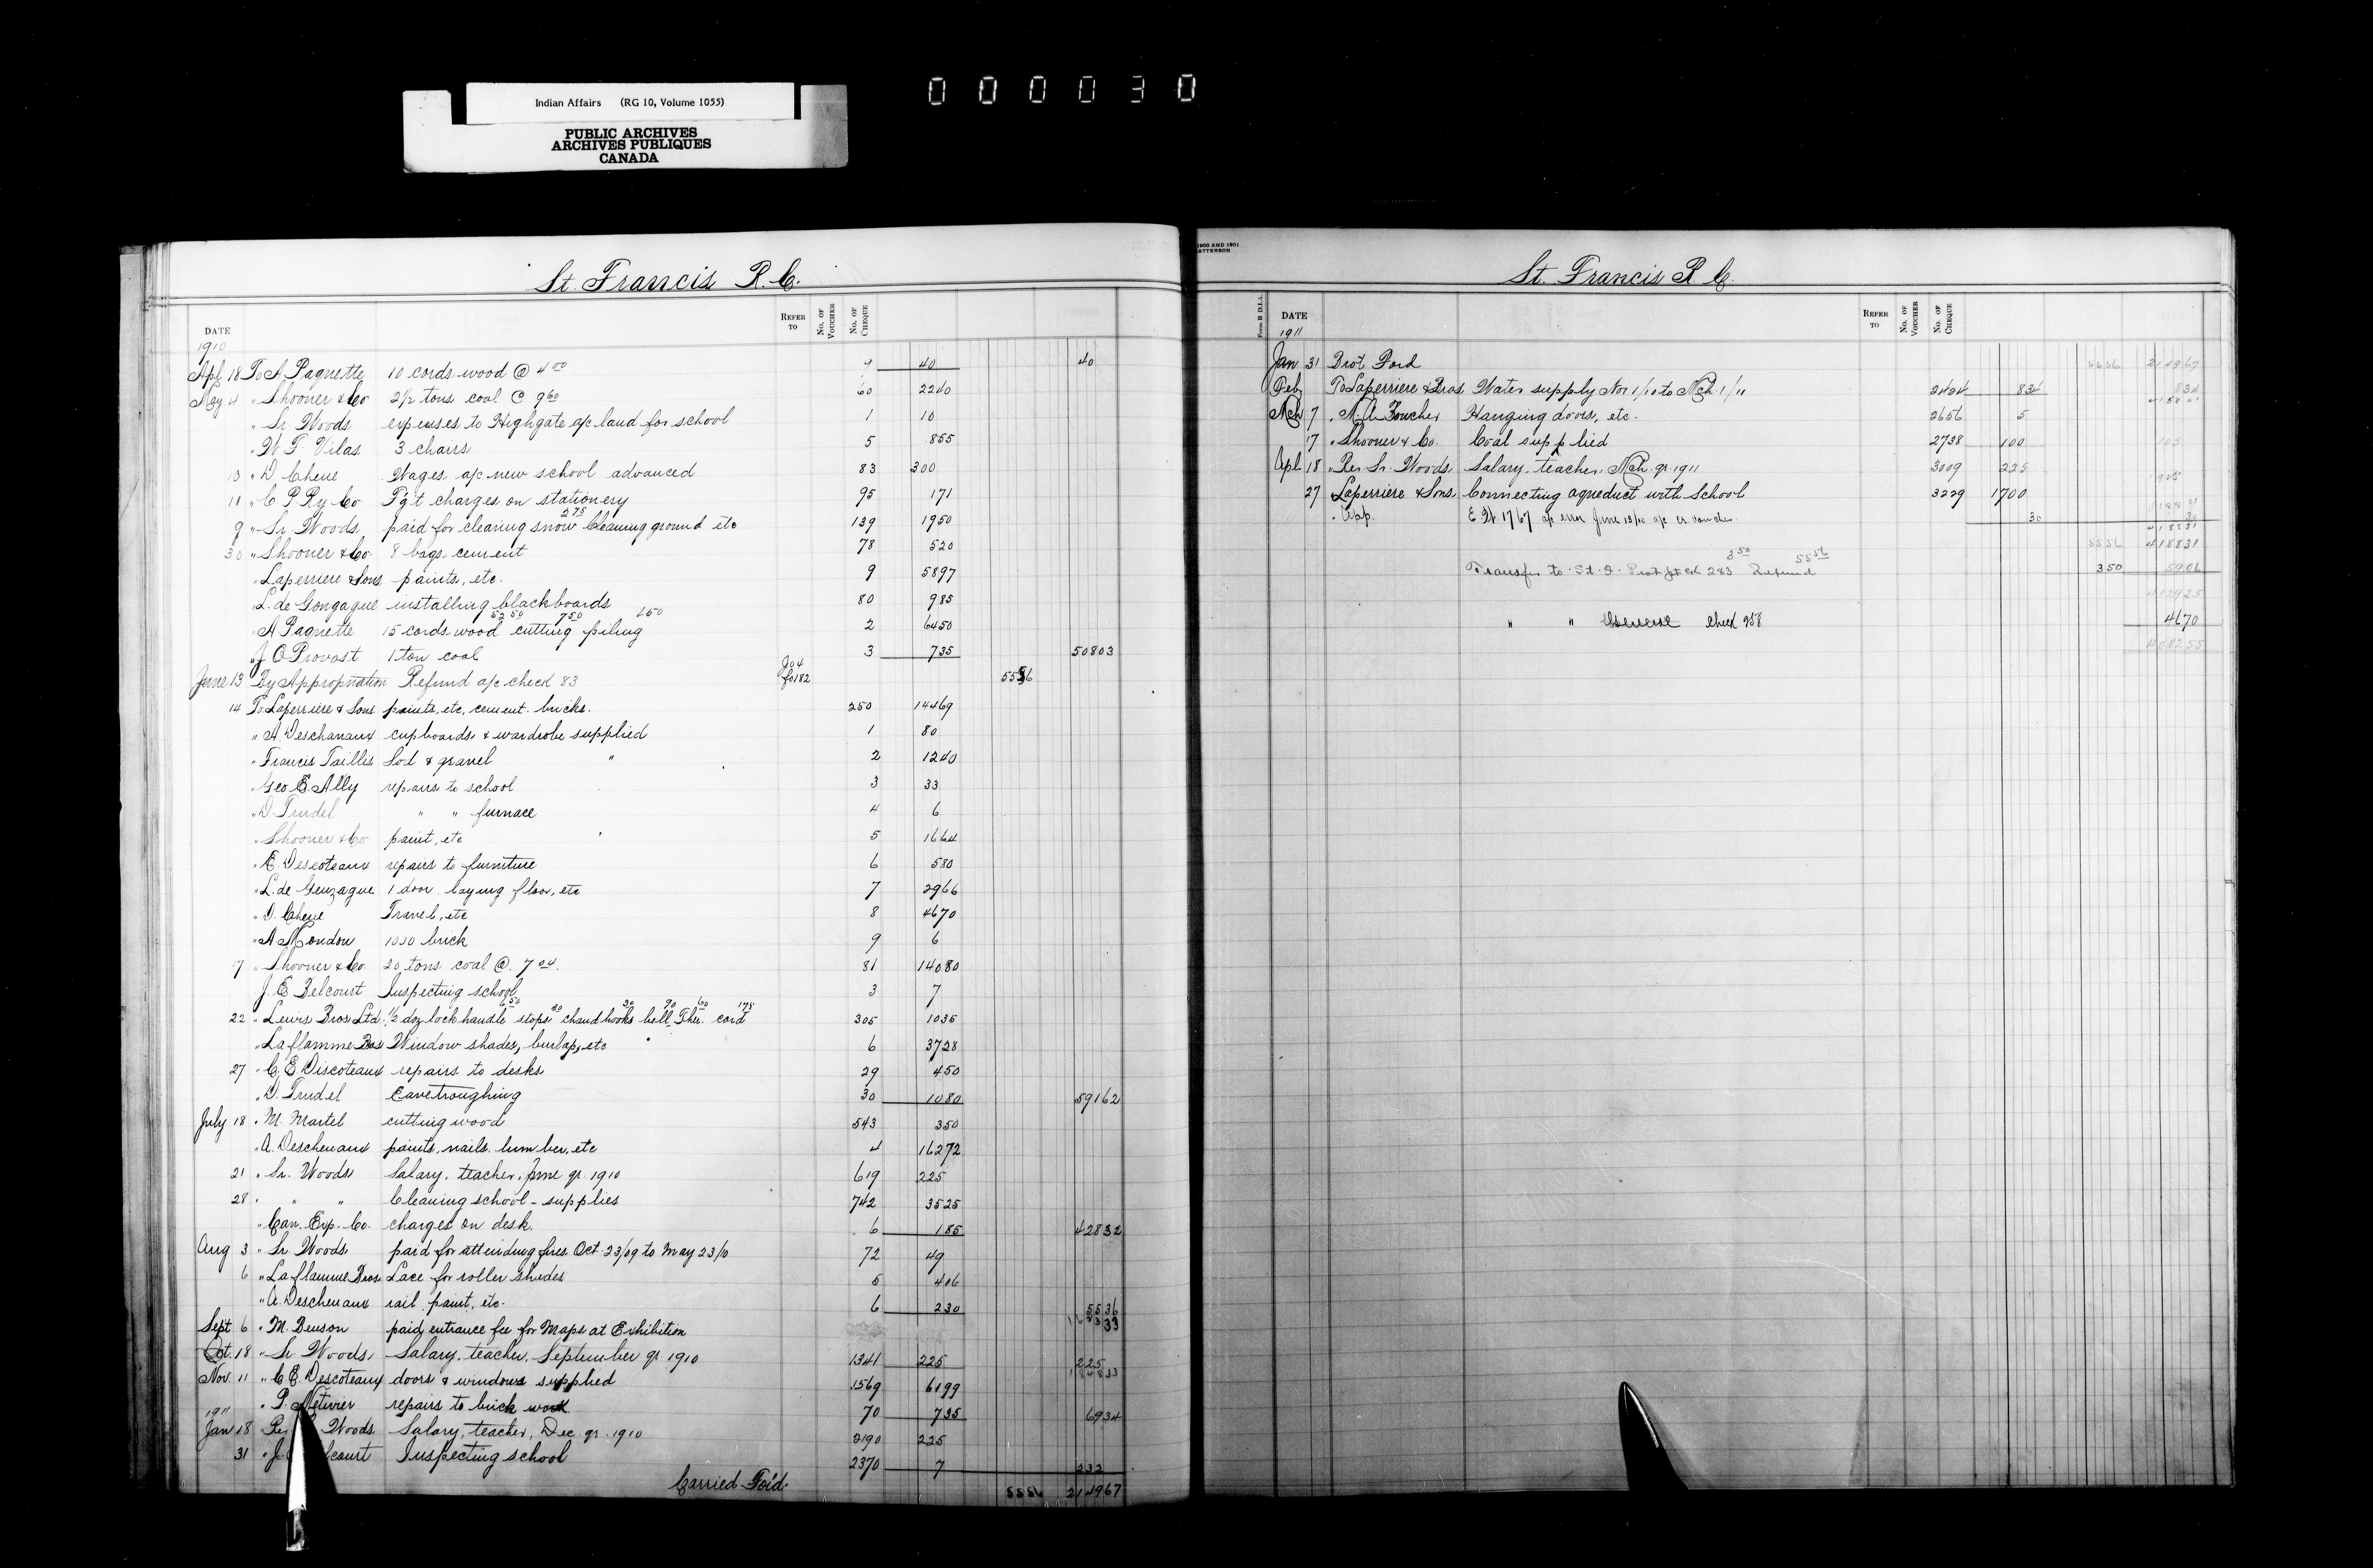 Indian Affairs (RG 10, Volume 1055)
PUBLIC ARCHIVES
ARCHIVES PUBLIQUES
CANADA
000030
St. Francis R. C.
DATE REFER TO No. OF VOUCHER No. OF CHEQUE
1910
Apl 18 To A Paquette 10 cords wood @ 4 00 9 40 40
May 4 " Shooner & Co 2 1/2 tons coal @ 9 60 60 2240
" Sr Woods expenses to Highgate a/c land for school 1 10
" W. F. Vilas 3 chairs 5 855
13 " D Chene Wages a/c new school advanced 83 300
11 " C P Ry Co Fg't charges on stationery 95 171
9 " Sr Woods paid for clearing snow 275 Cleaning ground etc 139 1950
30 " Shooner & Co. 8 bags cement 78 520
" Laperriere & Sons paints, etc. 9 5897
" L. de Gongague installing blackboards 80 985
" A Paquette 15 cords wood 5250 cutting 750 piling 450 2 6450
" J O Provost 1 ton coal 3 735 50803
June 13 By Appropriation Refund a/c check 83 Jo 4 fo 182 5556
14 To Laperriere & Sons paints, etc, cement. bricks. 250 14469
" A. Deschanaux cupboards & wardrobe supplied 1 80
" Francis Taillis Sod & gravel " 2 1240
" Geo E. Ally repairs to school 3 33
" D. Trudel " " furnace 4 6
" Shooner & Co paint, etc 5 1664
" E. Descoteaux repairs to furniture 6 580
" L. de Gonzague 1 door laying floor, etc 7 2966
" D. Chene Travel, etc 8 4670
" A Mondou 1000 brick 9 6
17 " Shooner & Co. 20 tons coal @ 7 04. 81 14080
J. E Belcourt Inspecting school 3 7
22 " Lewis Bros Ltd. 1/2 doz lock handle 650 stops 30 chand hooks 30 bell 90 Ther. 60 cord 175 305 1035
" Laflamme Bros Window shades, burlap, etc 6 3728
27 " C. E. Discoteaux repairs to desks 29 450
" D. Trudel Eavetroughing 30 1080 59162
July 18 " M. Martel cutting wood 543 350
" A. Deschenaux paints, nails. lumber, etc 4 16272
21 " Sr. Woods Salary, teacher, June qr. 1910 619 225
28 " " " Cleaning school - supplies 742 3525
" Can. Exp. Co. charges on desk. 6 185 42832
Aug 3 " Sr Woods paid for attending fires Oct. 23/09 to May 23/10 72 49
6 " Laflamme Bros. Lace for roller shades 5 406
" A. Deschenaux rail, paint, etc. 6 230 5536
Sept 6 " M. Benson paid entrance fee for Maps at Exhibition
Oct. 18 " Sr Woods, Salary, teacher, September qr 1910 1341 225 225
Nov. 11 " C E. Descoteaux doors & windows supplied 1569 6199
" P. Metivier repairs to brick work 70 735 6934
1911
Jan 18 Woods. Salary, teacher, Dec. qr. 1910 2190 225
31 " J. Inspecting school 2370 7 232
Carried For'd. 5556 214967
1900 AND 1901
St. Francis R. C.
Form B D.I.A.
DATE REFER TO No. OF VOUCHER No. OF CHEQUE
1911
Jan 31 Brot Ford 5556 214967
Feb To Laperriere & Bros. Water supply Nov 1/10 to Mch. 1/11 2424 834 834
Mch 7 " N. A. Foucher Hanging doors, etc. 2656 5
17 " Shooner & Co. Coal supplied 2738 100 105
Apl 18 " Rev. Sr. Woods. Salary, teacher, Mch. qr. 1911 3009 225
27 " Laperriere & Sons Connecting aqueduct with School 3229 1700 1925
" App. 1767 a/c error June 13/10 30 30
418831
5556 418831
Transfer to 350 283 Refund 5556 350 5906
412925
" " check 958 4670
408255